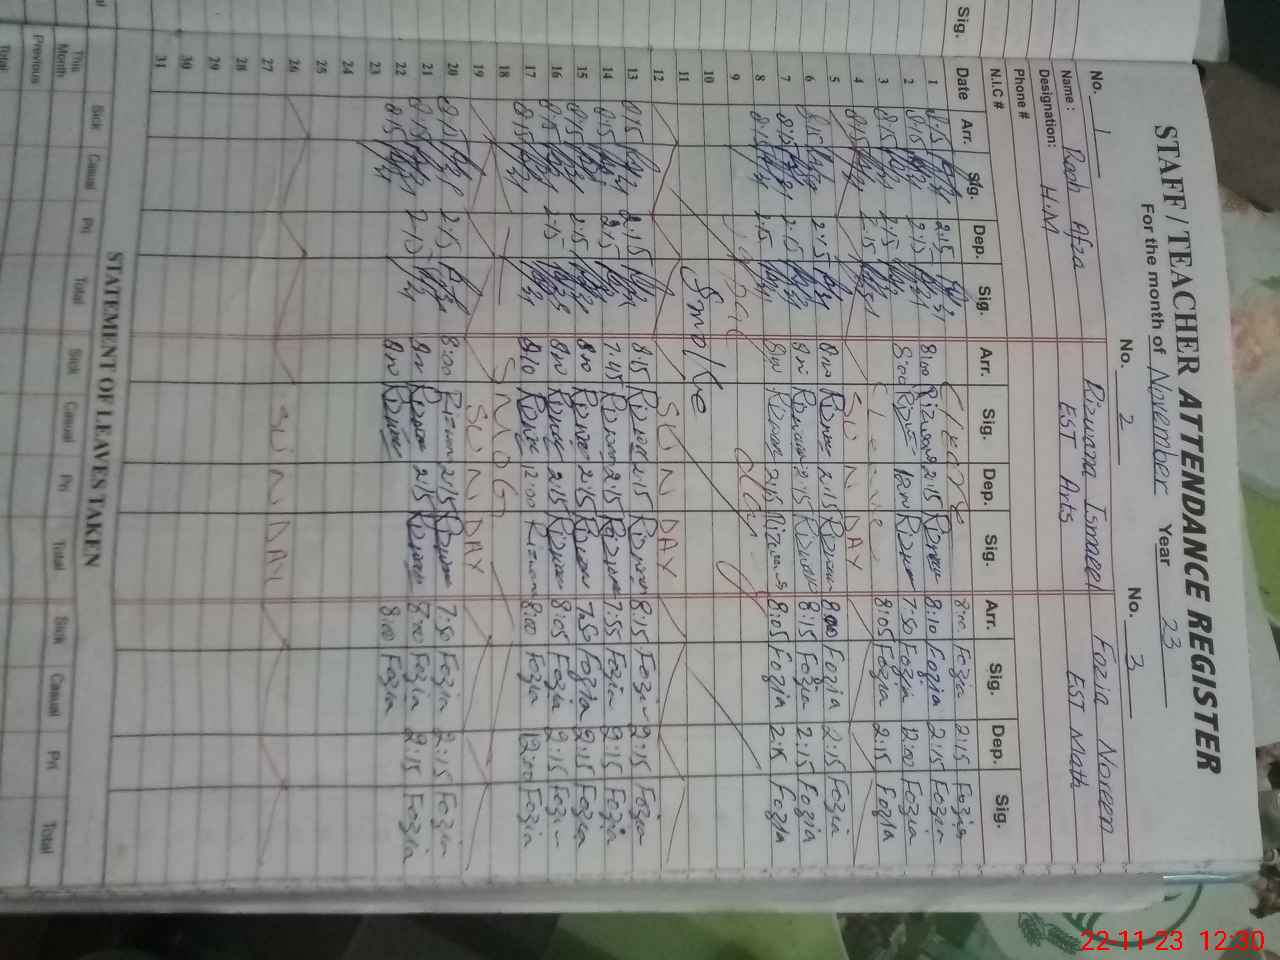 STAFF/TEACHER ATTENDANCE REGISTER
For the month of November Year 23
No. 1 No. 2 No. 3
Name: Rooh Afza Rizwana Ismaeel Fozia Noreen
Designation: H.M EST Arts EST Math
Phone #
N.I.C #
Sig. Date Arr. Sig. Dep. Sig. Arr. Sig. Dep. Sig. Arr. Sig. Dep. Sig.
1 8:15 2:15 C/Leave 8:00 Fozia 2:15 Fozia
2 8:15 2:15 8:00 Rizwana 2:15 Rizwana 8:10 Fozia 2:15 Fozia
3 8:15 2:15 8:00 Rizwana 12:00 Rizwana 7:50 Fozia 12:00 Fozia
4 8:15 2:15 C Leave 8:05 Fozia 2:15 Fozia
5 SUNDAY
6 8:15 2:15 8:00 Rizwana 2:15 Rizwana 8:00 Fozia 2:15 Fozia
7 8:15 2:15 8:00 Rizwana 2:15 Rizwana 8:15 Fozia 2:15 Fozia
8 8:15 2:15 8:00 Rizwana 2:15 Rizwana 8:05 Fozia 2:15 Fozia
9 day
10
11 Smoke
12 SUNDAY
13 8:15 2:15 8:15 Rizwana 2:15 Rizwana 8:15 Fozia 2:15 Fozia
14 8:15 2:15 7:45 Rizwana 2:15 Rizwana 7:55 Fozia 2:15 Fozia
15 8:15 2:15 8:00 Rizwana 2:15 Rizwana 7:50 Fozia 2:15 Fozia
16 8:15 2:15 8:00 Rizwana 2:15 Rizwana 8:05 Fozia 2:15 Fozia
17 8:15 8:10 Rizwana 12:00 Rizwana 8:00 Fozia 12:00 Fozia
18 SMOG
19 SUNDAY
20 8:15 2:15 8:00 Rizwana 2:15 Rizwana 7:50 Fozia 2:15 Fozia
21 8:15 2:15 8:00 Rizwana 2:15 Rizwana 8:00 Fozia 2:15 Fozia
22 8:15 8:00 Rizwana 8:00 Fozia
23
24
25
26 SUNDAY
27
28
29
30
31
STATEMENT OF LEAVES TAKEN
This Month Sick Casual Pri Total Sick Casual Pri Total Sick Casual Pri Total
Previous
Total
22-11-23 12:30